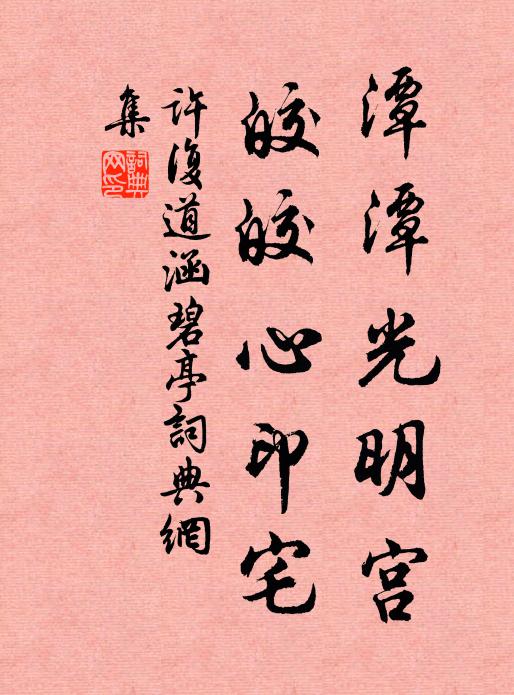 潭潭光明宫
皎皎心印宅
许復道涵碧亭詞典網
集
詞典
网印